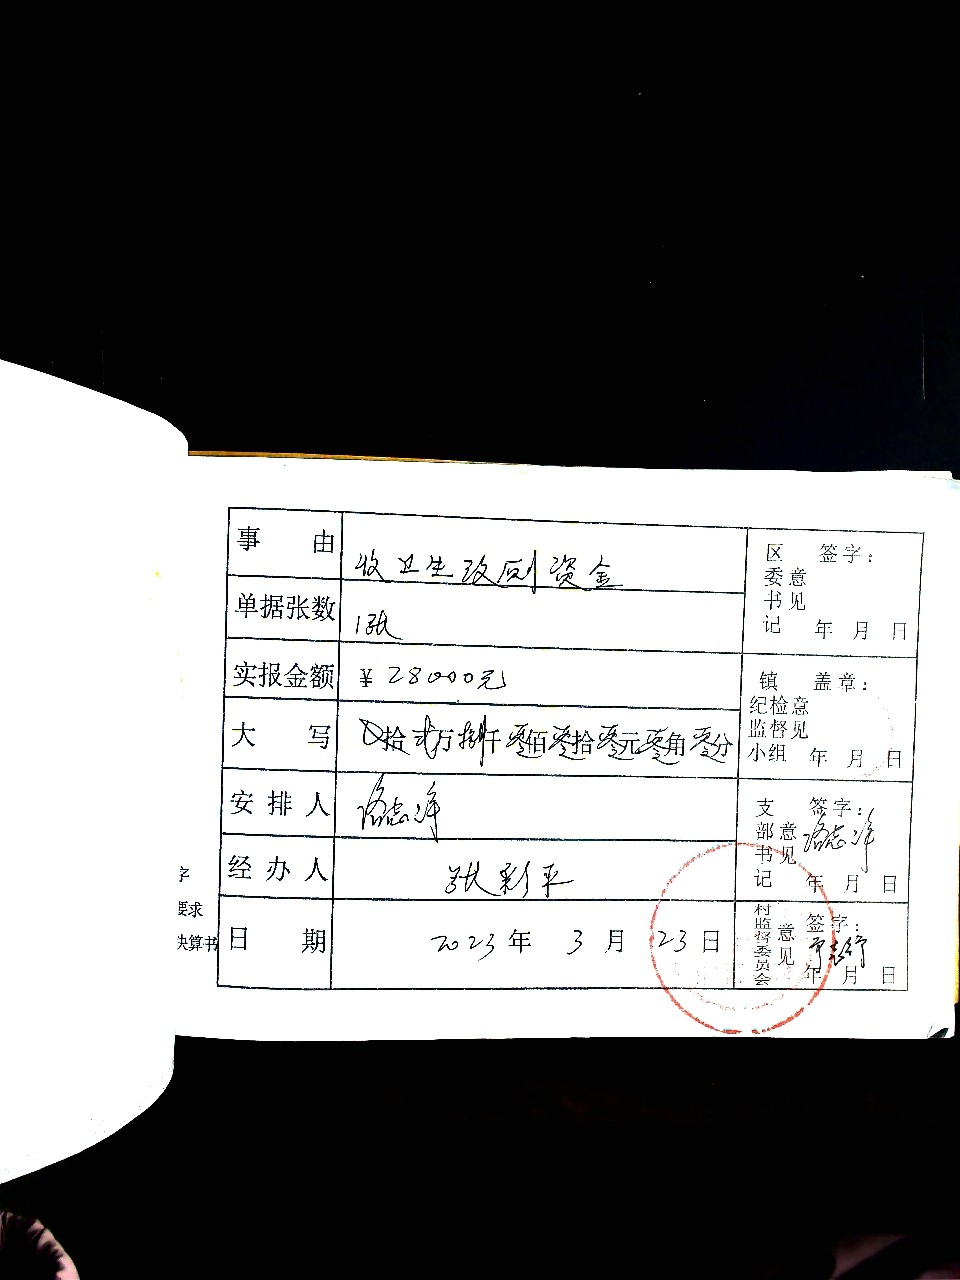 事 由 收卫生改厕资金
单据张数 1张
实报金额 ¥28000元
大 写 拾贰万捌仟零佰零拾零元零角零分
安 排 人
经 办 人 张彩平
日 期 2023年3月23日
区委书记意见 签字：
年 月 日
镇纪检监督小组意见 盖章：
年 月 日
支部书记意见 签字：
年 月 日
村监督委员会意见 签字：
年 月 日
字
要求
决算书